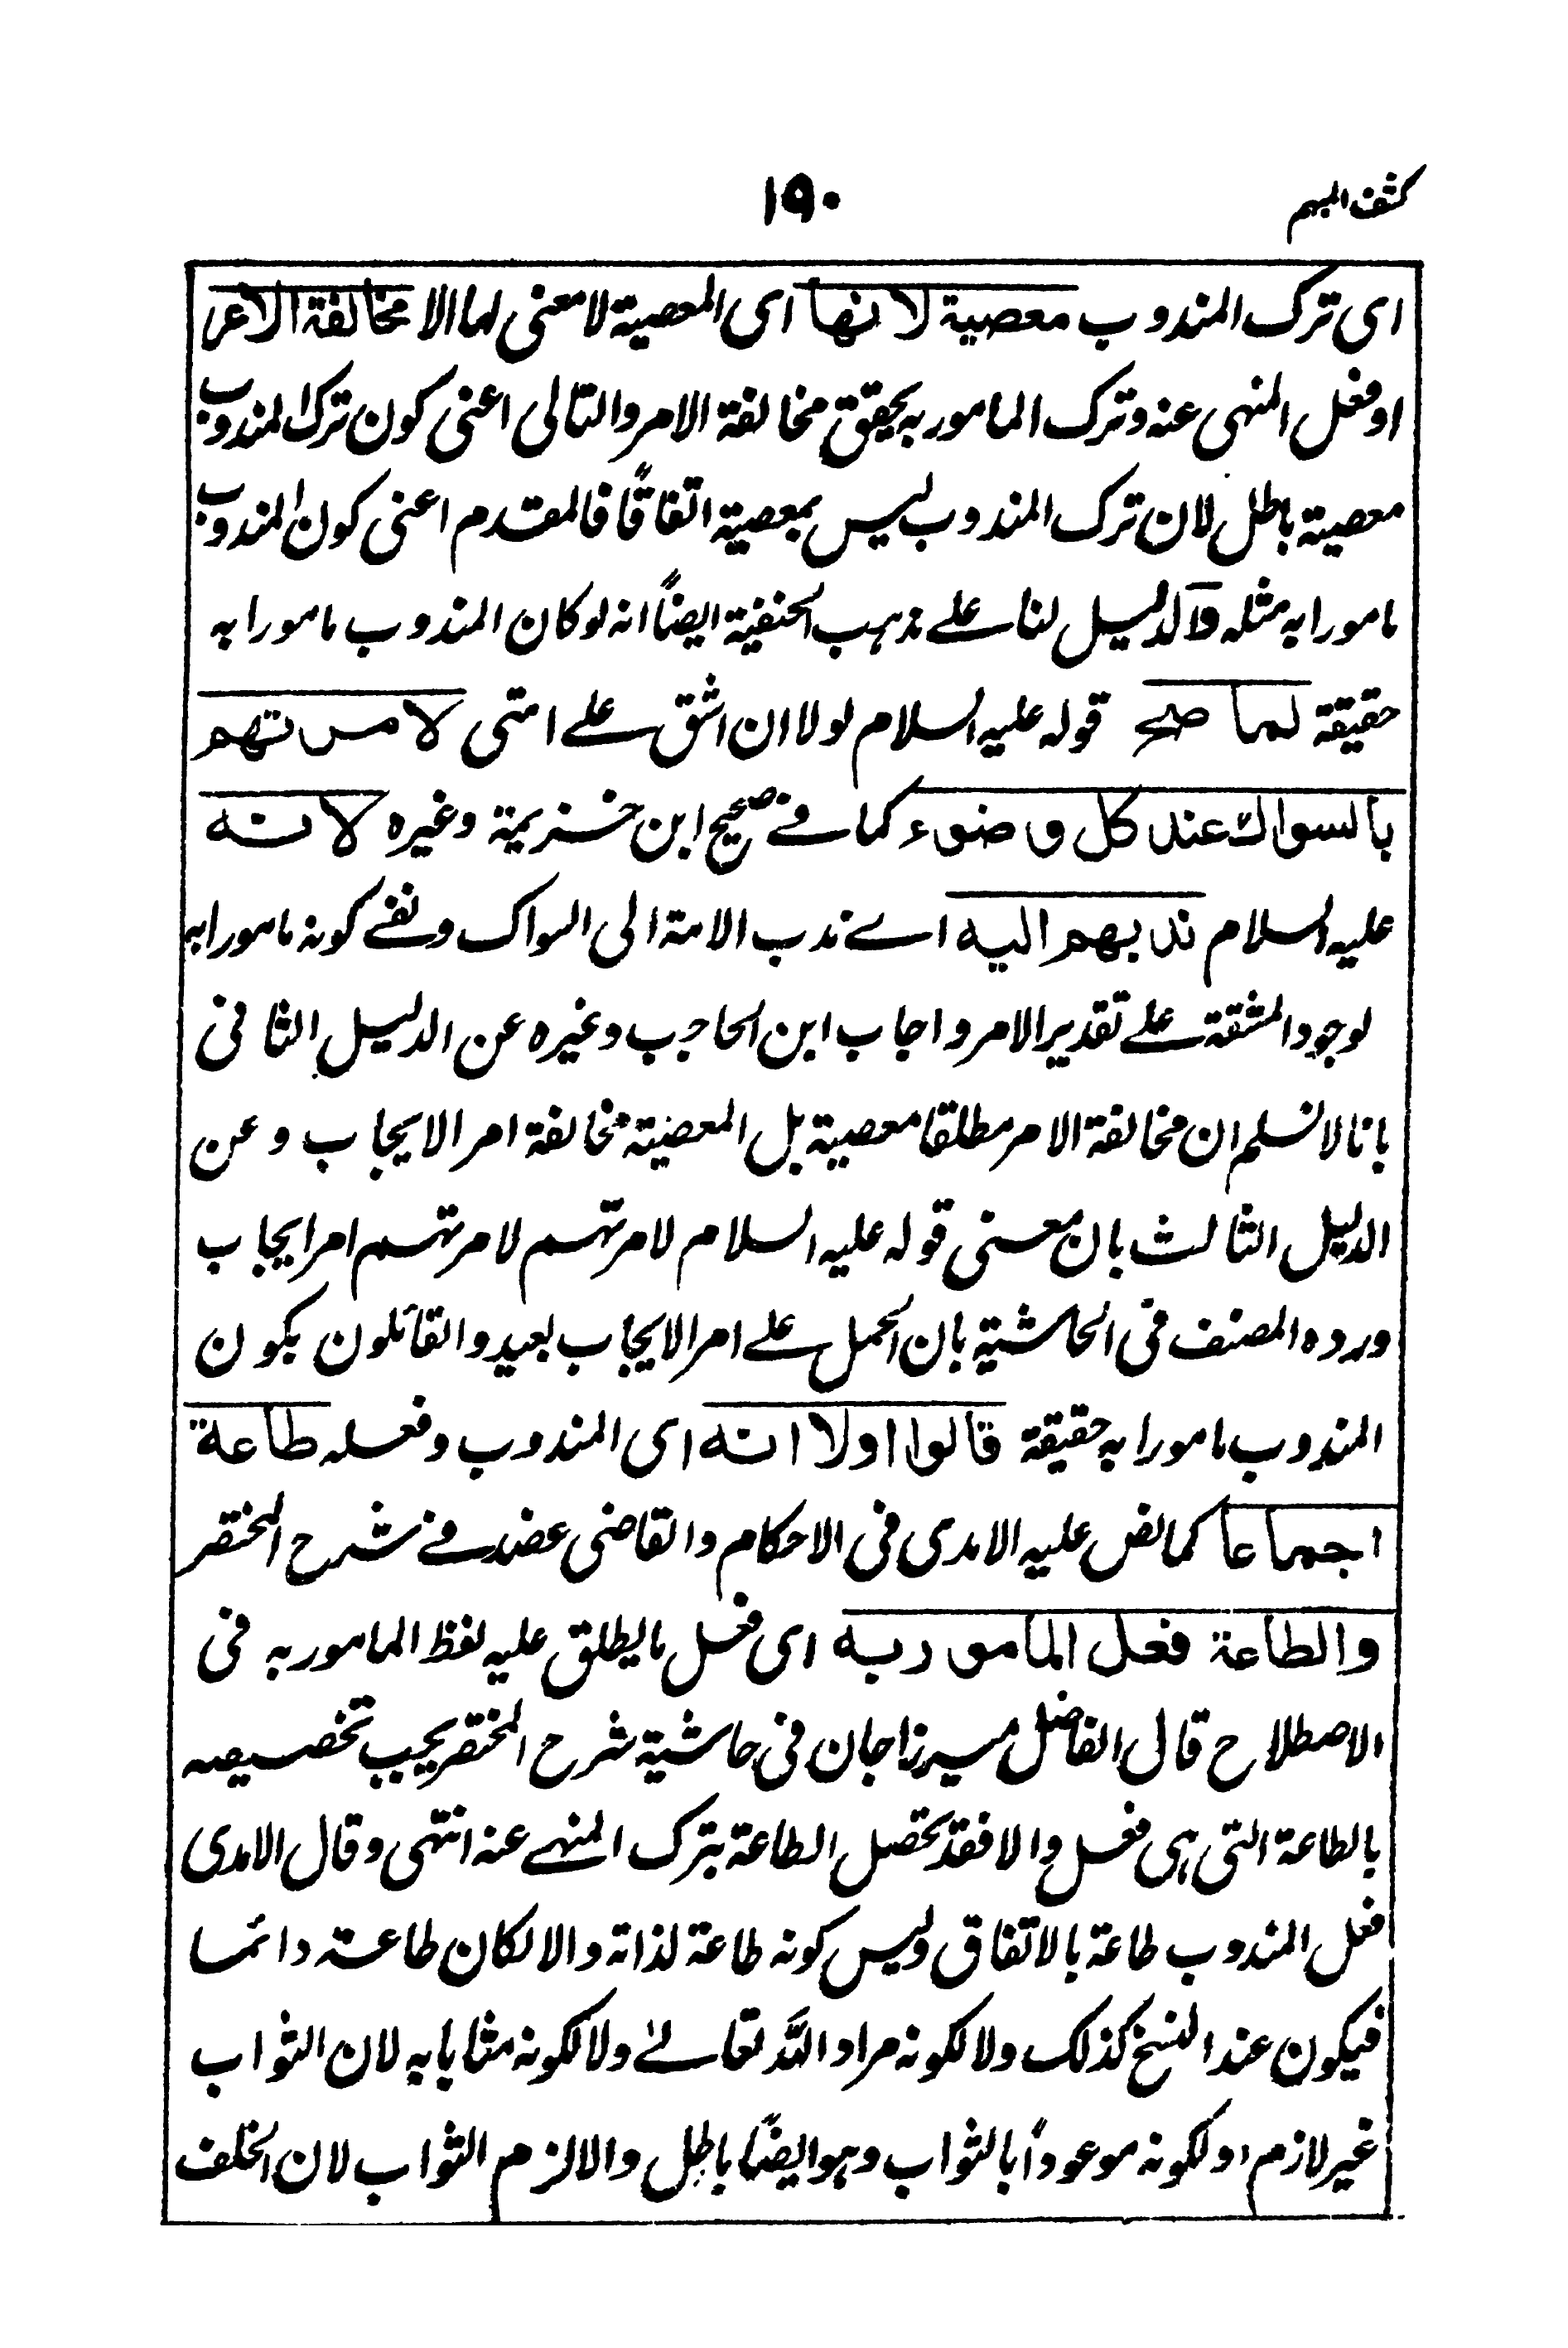 كشف المبهم
١٩٠
اى ترك المندوب معصية لانها اى المعصية لا معنى لها الا مخالفة الامر
او فعل المنهى عنه وترك المامور به يحقق مخالفة الامر والتالى اعنى كون ترك المندوب
معصية باطل لان ترك المندوب ليس بمعصية اتفاقًا فالمقدم اعنى كون المندوب
مامورا به مثله والدليل لنا على مذهب الحنفية ايضًا انه لو كان المندوب مامورا به
حقيقة لما صح قوله عليه السلام لولا ان اشق على امتى لامرتهم
بالسواك عند كل وضوء كما فى صحيح ابن خزيمة وغيره لانه
عليه السلام ندبهم اليه اى ندب الامة الى السواك ونفى كونه مامورا به
لوجود المشقة على تقدير الامر واجاب ابن الحاجب وغيره عن الدليل الثانى
بانا لا نسلم ان مخالفة الامر مطلقا معصية بل المعصية مخالفة امر الايجاب وعن
الدليل الثالث بان معنى قوله عليه السلام لامرتهم لامرتهم امر ايجاب
ورده المصنف فى الحاشية بان الحمل على امر الايجاب بعيد والقائلون بكون
المندوب مامورا به حقيقة قالوا اولا انه اى المندوب وفعله طاعة
اجماعا كما نص عليه الامدى فى الاحكام والقاضى عضد فى شرح المختصر
والطاعة فعل المامور به اى فعل ما يطلق عليه لفظ المامور به فى
الاصطلاح قال الفاضل ميرزا جان فى حاشية شرح المختصر يجب تخصيصه
بالطاعة التى هى فعل والا فقد تحصل الطاعة بترك المنهى عنه انتهى وقال الامدى
فعل المندوب طاعة بالاتفاق وليس كونه طاعة لذاته والا لكان طاعة دائما
فيكون عند النسخ كذلك ولا لكونه مراد الله تعالى ولا لكونه مثابا به لان الثواب
غير لازم او لكونه موعودًا بالثواب وهو ايضًا باطل والا لزم الثواب لان الخلف